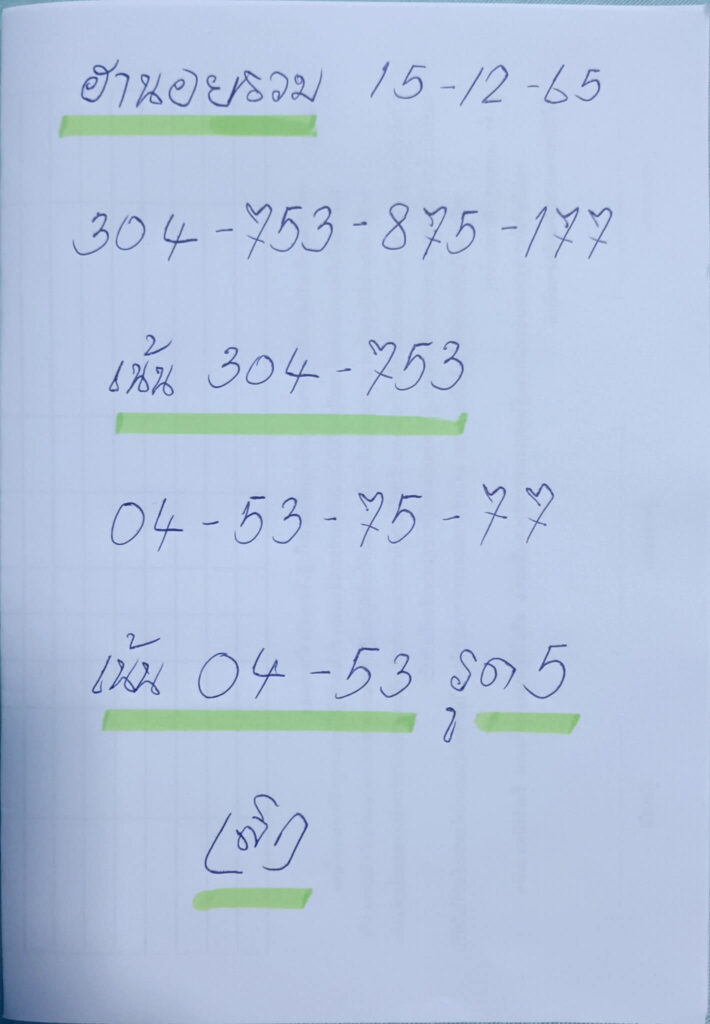 ฮานอยรวม 15-12-65
304-753-875-177
เน้น 304-753
04-53-75-77
เน้น 04-53 รูด 5